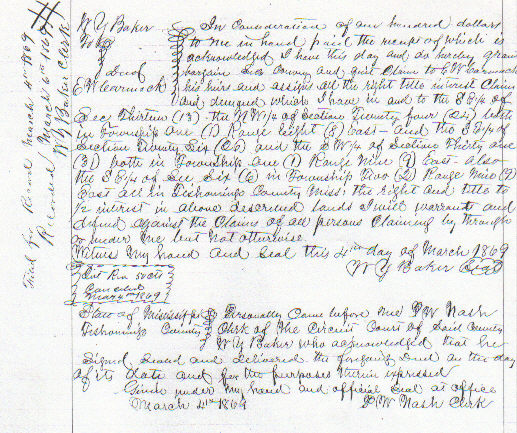 Filed for Record March 4th 1869
Recorded March 6th 1869
W Y Baker Clerk
W Y Baker
To
Deed
E W Carmack
In Consideration of one hundred dollars
to me in hand paid the receipt of which is
acknowledged I have this day and do hereby grant
bargain Sell Convey and quit Claim to E W Carmack
his heirs and assigns all the right title interest Claim
and demand which I have in and to the S E 1/4 of
Sec Thirteen (13) the N W 1/4 of Section Twenty four (24) both
in Township one (1) Range Eight (8) East and the S E 1/4 of
Section Twenty Six (26) and the S W 1/4 of Section Thirty one
(31) both in Township one (1) Range Nine (9) East also
the S E 1/4 of Sec Six (6) in Township Two (2) Range Nine (9)
East all in Tishomingo County Miss: this right and title to
1/2 interest in above described lands I will warrant and
defend against the Claims of all persons Claiming by through
or under me but not otherwise
Witness My hand and Seal this 4th day of March 1869
W Y Baker Seal
Int Rev 50 cts
Canceled
Mar 4th 1869
State of Mississippi
Tishomingo County
Personally Came before me P W Nash
Clerk of the Circuit Court of Said County
W Y Baker who acknowledged that he
Signed Sealed and delivered the foregoing Deed on the day
of its date and for the purposes therein expressed
Given under my hand and official Seal at office
March 4th 1869
P W Nash Clerk